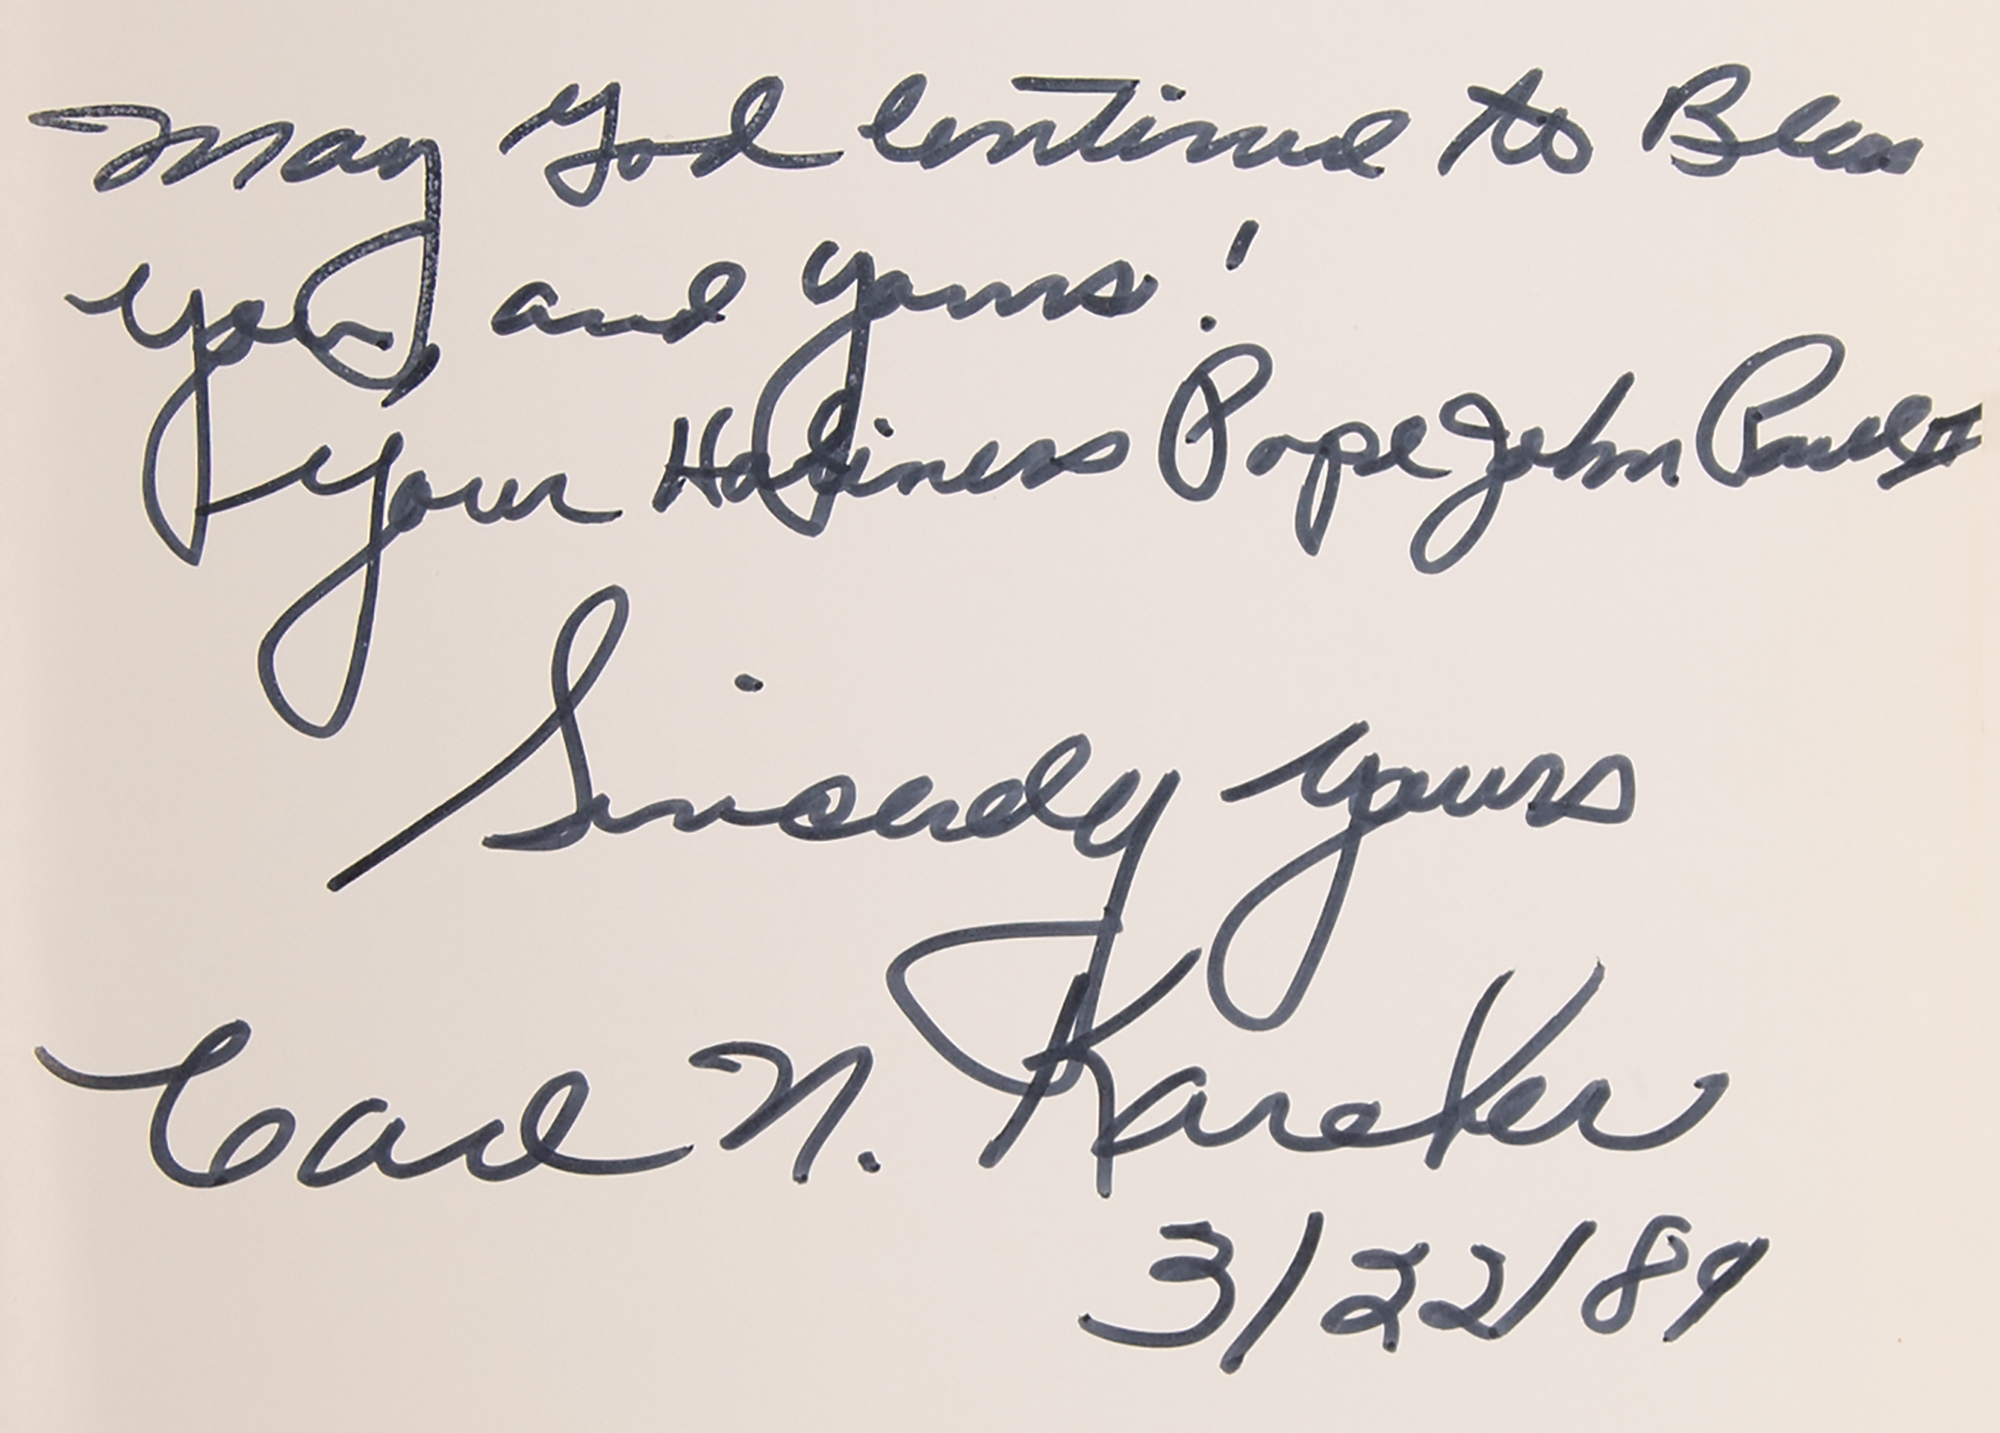 May God Continue to Bless
you, and yours!
Your Holiness Pope John Paul II
Sincerely yours
Carl N. Karcher
3/22/89